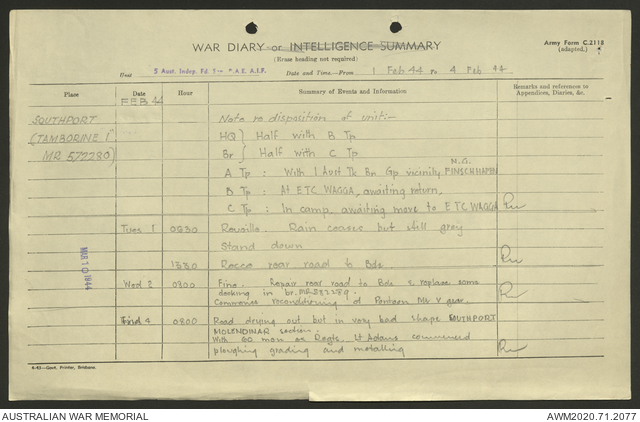 WAR DIARY or INTELLIGENCE SUMMARY
(Erase heading not required)
Army Form C.2118
(adapted.)
Unit 5 Aust. Indep. Fd. A.E. A.I.F.
Date and Time—From 1 Feb 44 To 4 Feb 44
Place
Date
Hour
Summary of Events and Information
Remarks and references to
Appendices, Diaries, &c.
FEB 44
SOUTHPORT
(TAMBORINE 1"
MR 572280)
Note re disposition of unit:-
HQ } Half with B Tp
Br } Half with C Tp
A Tp : With 1 Aust Tk Bn Gp vicinity N.G. FINSCHHAFEN
B Tp : At ETC WAGGA, awaiting return,
C Tp : In camp, awaiting move to ETC WAGGA
Tues 1 0830 Reveille. Rain ceases but still grey
Stand down
1330 Recce rear road to Bde
Wed 2 0800 Fine. Repair rear road to Bde & replace some
decking in br. MR
Commence reconditioning of Pontoon Mk V gear.
4 0800 Road drying out but in very bad shape SOUTHPORT
MOLENDINAR section.
With 60 men as Regts, Lt Adams commenced
ploughing grading and metalling
MAR 10 1944
4-43—Govt. Printer, Brisbane.
AUSTRALIAN WAR MEMORIAL
AWM2020.71.2077